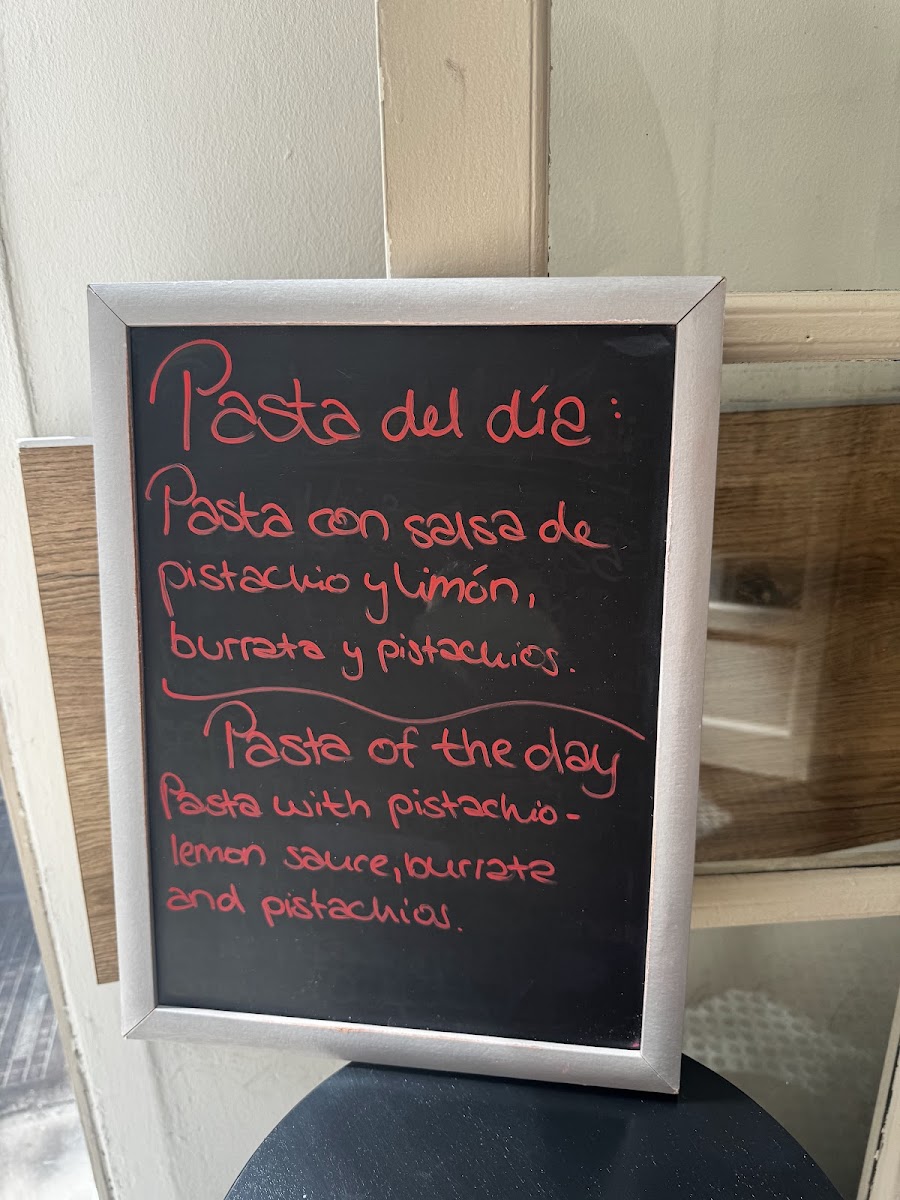 Pasta del día:
Pasta con salsa de
pistachio y limón,
burrata y pistachios.
Pasta of the day
Pasta with pistachio-
lemon sauce, burrata
and pistachios.